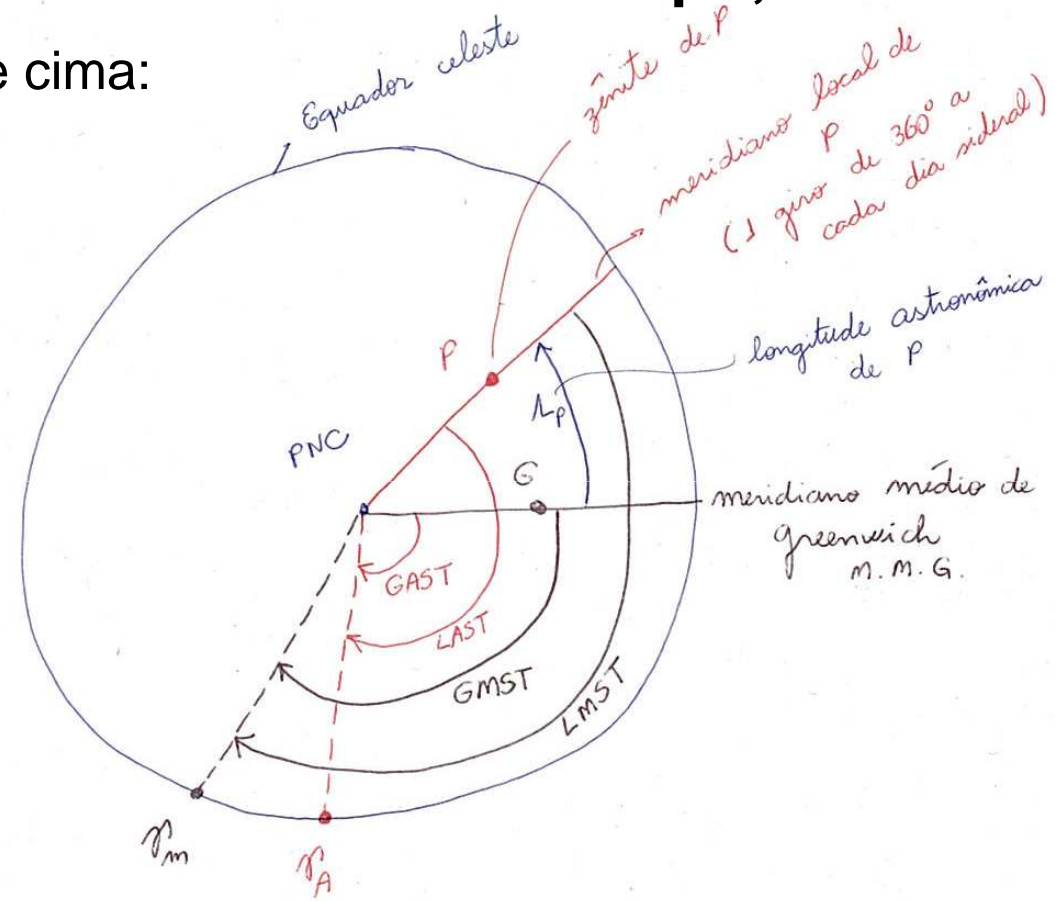 e cima:
Equador celeste
zênite de P
meridiano local de
P
(1 giro de 360° a
cada dia sideral)
longitude astronômica
de P
P
Λp
PNC
G
meridiano médio de
greenwich
M.M.G.
GAST
LAST
GMST
LMST
γm
γA